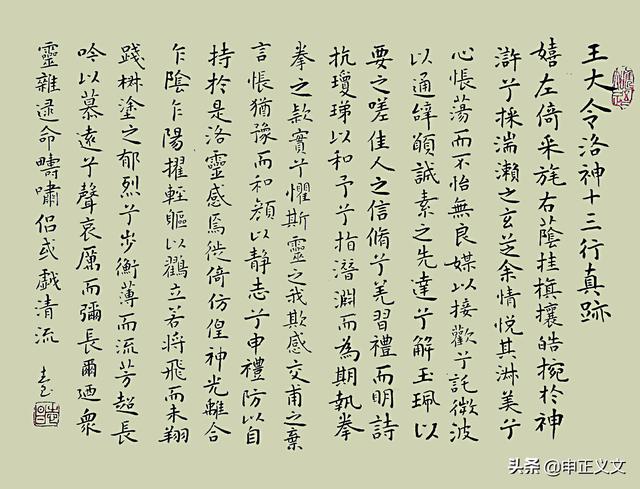 王大令洛神十三行真跡
嬉左倚采旄右蔭桂旗攘皓捥於神
滸兮採湍瀨之玄芝余情悅其淋美兮
心悵蕩而不怡無良媒以接歡兮託微波
以通辭願誠素之先達兮解玉珮以
要之嗟佳人之信脩兮羌習禮而明詩
抗瓊珶以和予兮指潛淵而為期執拳
拳之款實兮懼斯靈之我欺感交甫之棄
言悵猶豫而和顏以靜志兮申禮防以自
持於是洛靈感焉徙倚仿偟神光離合
乍陰乍陽擢輕軀以鸖立若將飛而未翔
踐椒塗之郁烈兮步衡薄而流芳超長
吟以慕遠兮聲哀厲而彌長爾迺眾
靈雜遝命疇嘯侶或戲清流
头条 @申正义文